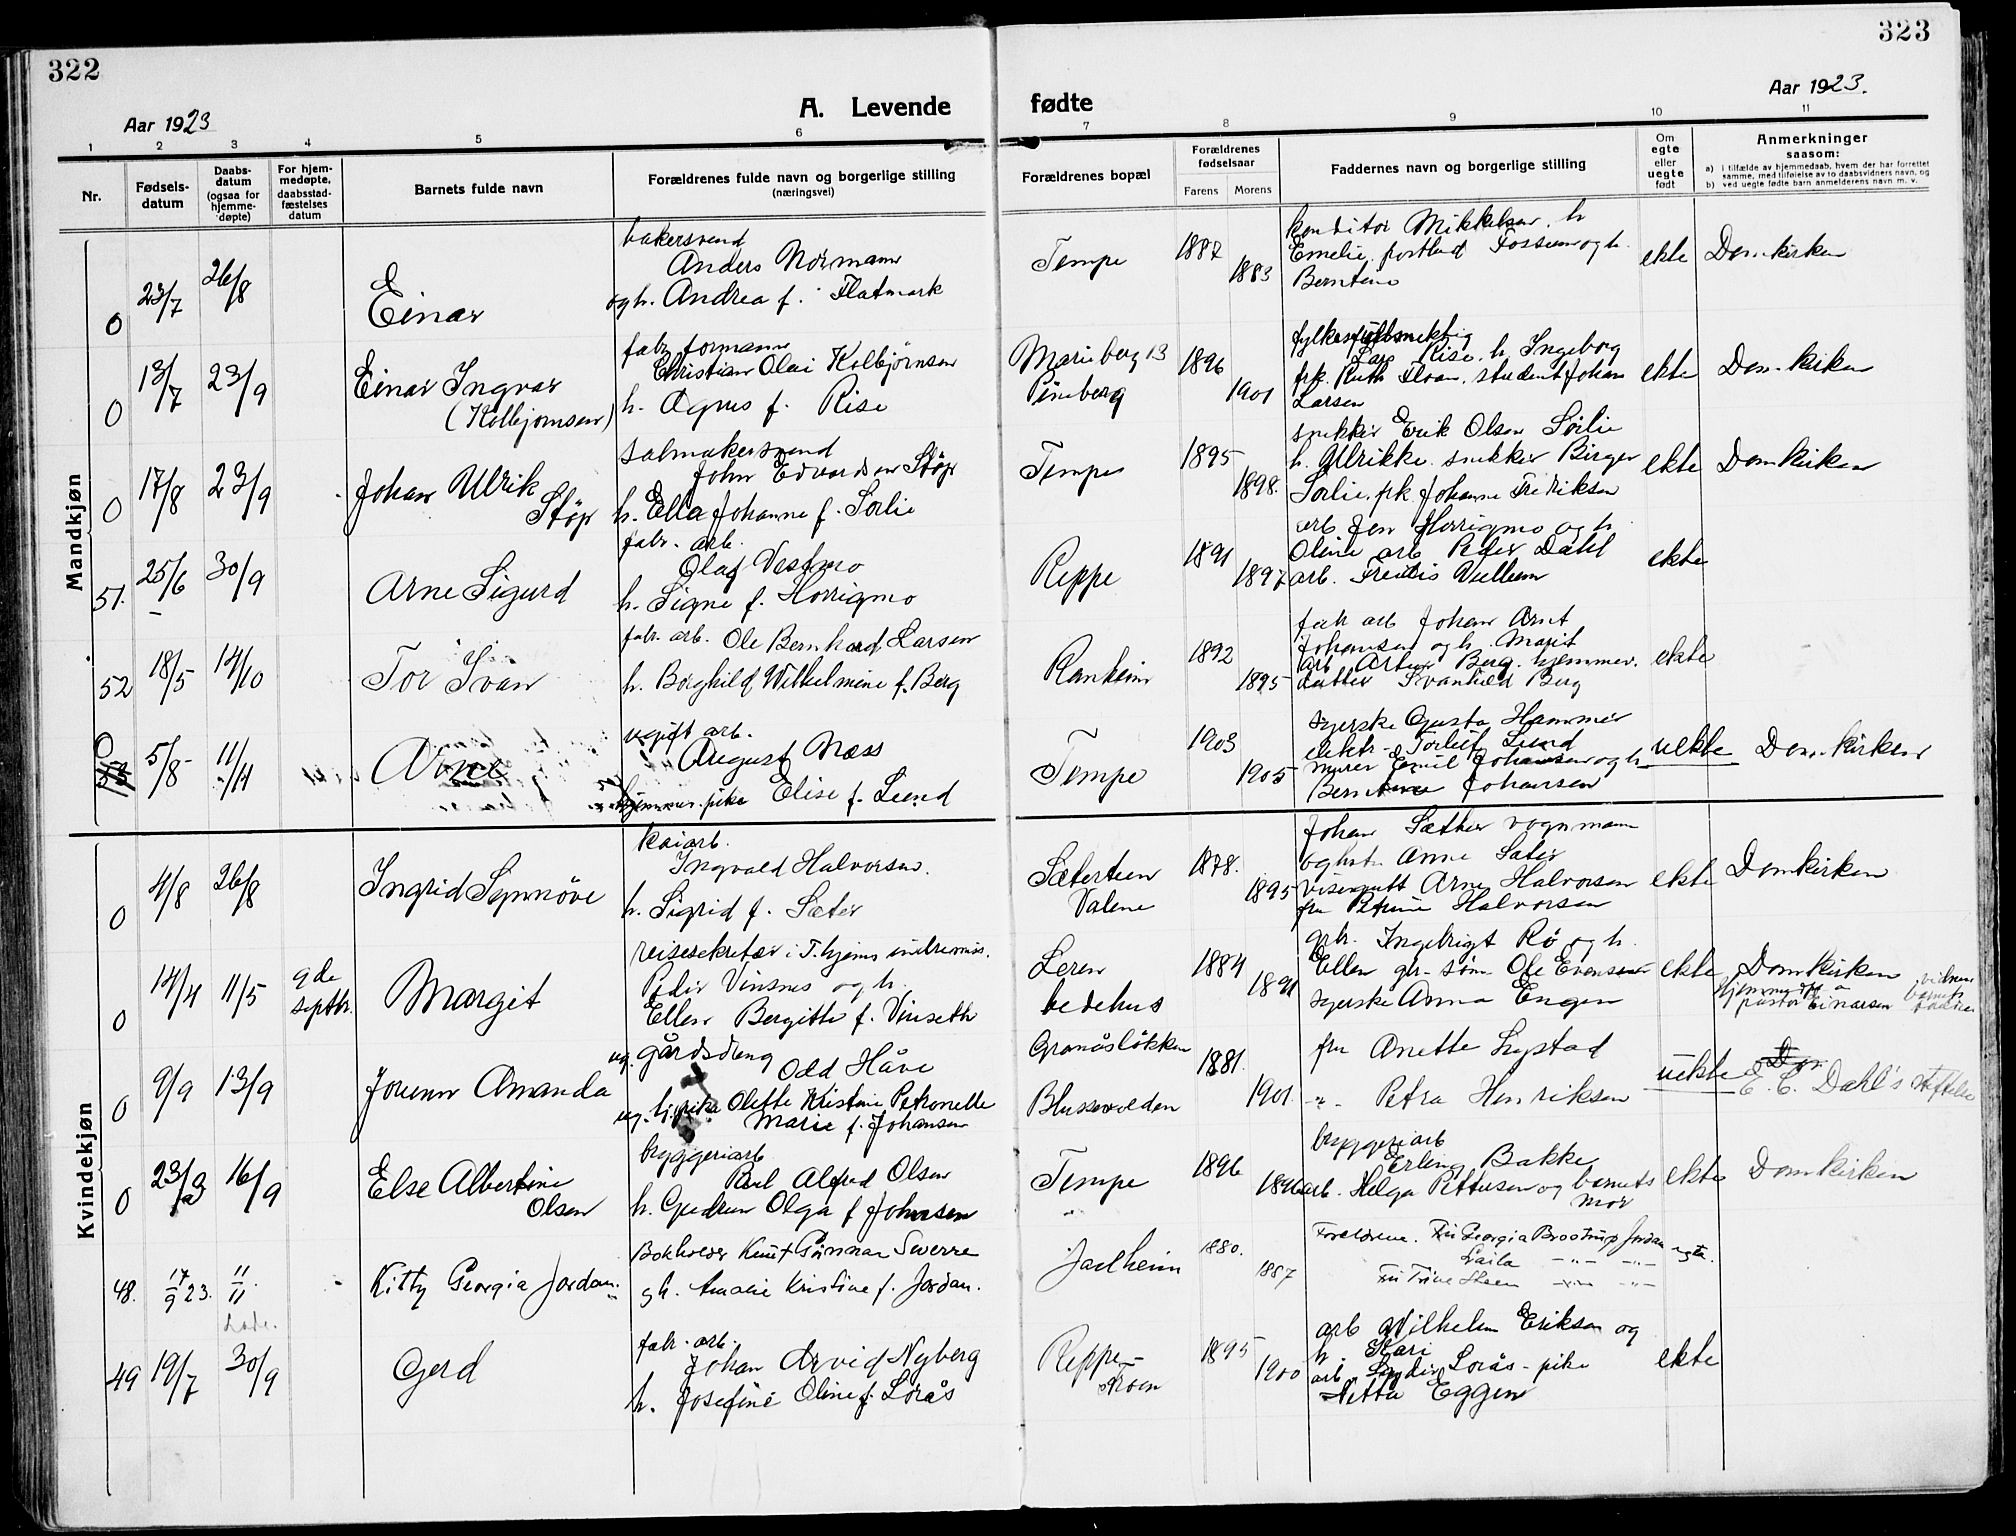 322
323
Aar 1923
A. Levende fødte
Aar 1923.
1 2 3 4 5 6 7 8 9 10 11
Nr.
Fødsels-
datum
Daabs-
datum
(ogsaa for
hjemme-
døpte)
For hjem-
medøpte,
daabsstad-
fæstelses
datum
Barnets fulde navn
Forældrenes fulde navn og borgerlige stilling
(næringsvei)
Forældrenes bopæl
Forældrenes
fødselsaar
Farens Morens
Faddernes navn og borgerlige stilling
Om
egte
eller
uegte
født
Anmerkninger
saasom:
a) i tilfælde av hjemmedaab, hvem der har forrettet
samme, med tilføielse av to daabsvidners navn, og
b) ved uegte fødte barn anmelderens navn m. v.
Mandkjøn
0 23/7 26/8 Einar
bakersvend
Anders Normann
og h. Andrea f. Flatmark
Tempe 1887 1883
konditor Mikkelsen. h
Emelie, postbud Fossum og h.
Berntine
ekte Domkirken
0 13/7 23/9 Einar Ingvar
(Kolbjørnsen)
fabr. formann
Christian Olai Kolbjørnsen
h. Agnes f. Rise
Marieborg 13
Pineberg
1896 1901
Lars Rise. h. Ingeborg
frk. Ruth Floan. student Johan
Larsen
ekte Domkirken
0 17/8 23/9 Johan Ulrik
Støp
salmakersvend
John Edvardsen Støp
h. Ella Johanne f. Sörlie
Tempe 1895 1898.
snekker Erik Olsen Sörlie
h. Ullrikke. snekker Birger
Sörlie, frk Johanne Fredriksen
ekte Domkirken
51. 25/6 30/9 Arne Sigurd
fabr. arb.
Olaf Vestmo
h. Signe f. Horrigmo
Reppe 1891 1897
arb Jon Horrigmo og h.
Oline arb Peder Dahl
arb.
ekte
52 18/5 14/10 Tor Ivan
fabr. arb. Ole Bernhard Larsen
h. Borghild Wilhelmine f. Berg
Ranheim 1892 1895
fabr arb Johan Arnt
Johansen og h. Marit
arb Arthur Berg. hjemmev.
datter Svanhild Berg
ekte
0 5/8 11/11 Arne
ugift arb.
August Næss
hjemmev. pike Elise f. Lund
Tempe 1903 1905
syerske Gusta Hammer
elektr. Torleif Lund
murer Emil Johansen og h
Berntine Johansen
uekte Domkirken
Kvindekjøn
0 4/8 26/8 Ingrid Synnöve
kaiarb.
Ingvald Halvorsen.
h. Sigrid f. Sæter
Valene
1878. 1895
Johan Sæther vognmann
og hstr. Anne Sater
visergutt Arne Halvorsen
fru Petrine Halvorsen
ekte Domkirken
0 14/4 11/5 9de
septbr. Margit
reisesekretær i T.hjems indremis.
Peder Vinsnes og h.
Ellen Bergitte f. Vinseth
Leren
bedehus
1884 1891
gbr. Ingebrigt Rö og h.
Ellen gbr. søn Ole Evensen
syerske Anna Engen
ekte Domkirken
hjemmedøpt a
pastor Einarsen
vidner
barnets
0 9/9 13/9 Jorunn Amanda
ug. gårdsdreng
Odd Håve
ug. tj.pike Olette Kristine Petronelle
Marie f. Johansen
Granåslökken
Blussuvolden
1881. 1901.
fru Anette Lystad
" Petra Henriksen
uekte Dom
E. C. Dahl's stiftelse
0 23/3 16/9 Else Albertine
Olsen
bryggeriarb
Paul Alfred Olsen
h. Gudrun Olga f Johnsen
Tempe 1896
bryggeriarb
Erling Bakke
arb. Helga Pettersen og barnets
mor
ekte Domkirken
48. 17/9 23. 11/11.
Lade. Kitty Georgia Jordan
Bokholder Knut Gunnar Sverre
g h. Amalie Kristine f. Jordan.
Jarlheim 1880. 1887
Foreldrene. Fru Georgia Brostrup Jordan
Laila — " — — " —
Fru Trine Steen — " — — " —
egte.
49 19/7 30/9 Gerd
fabr. arb.
Johan Arvid Nyberg
h. Josefine Oline f. Lorås
Reppe-
1895 1900
arb Vilhelm Eriksen og
h Kari
arb. Lorås - pike
Eggen
ekte